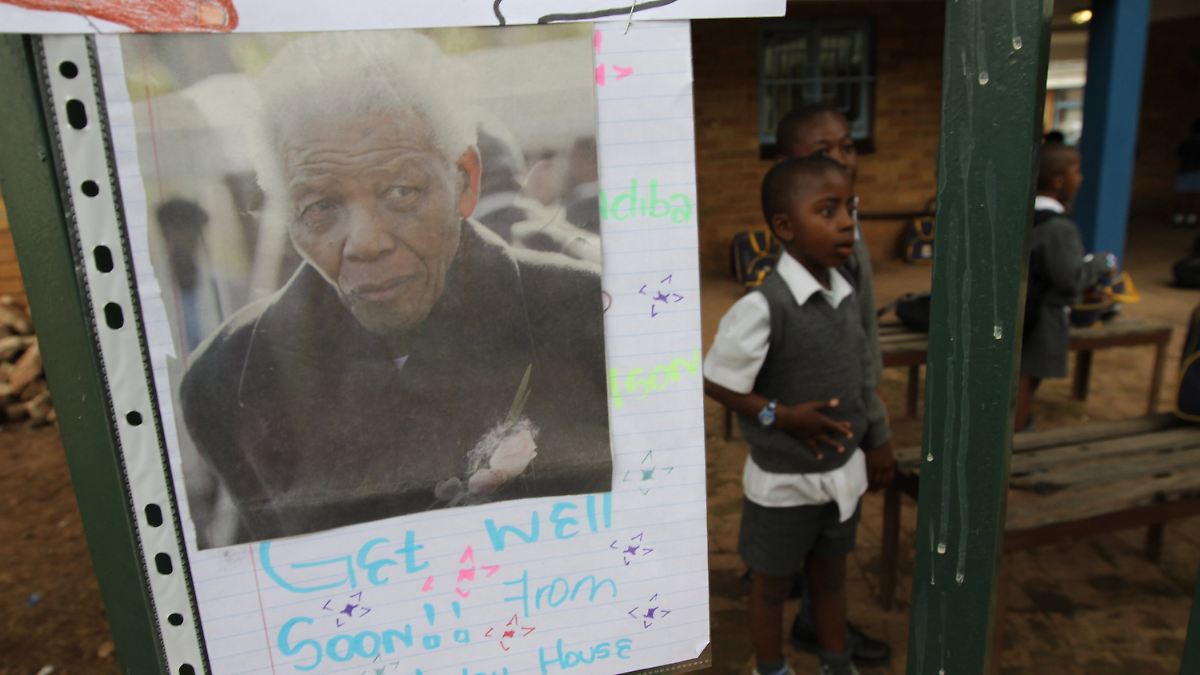 adiba
son
GEt WEll
Soon!! From
HousE